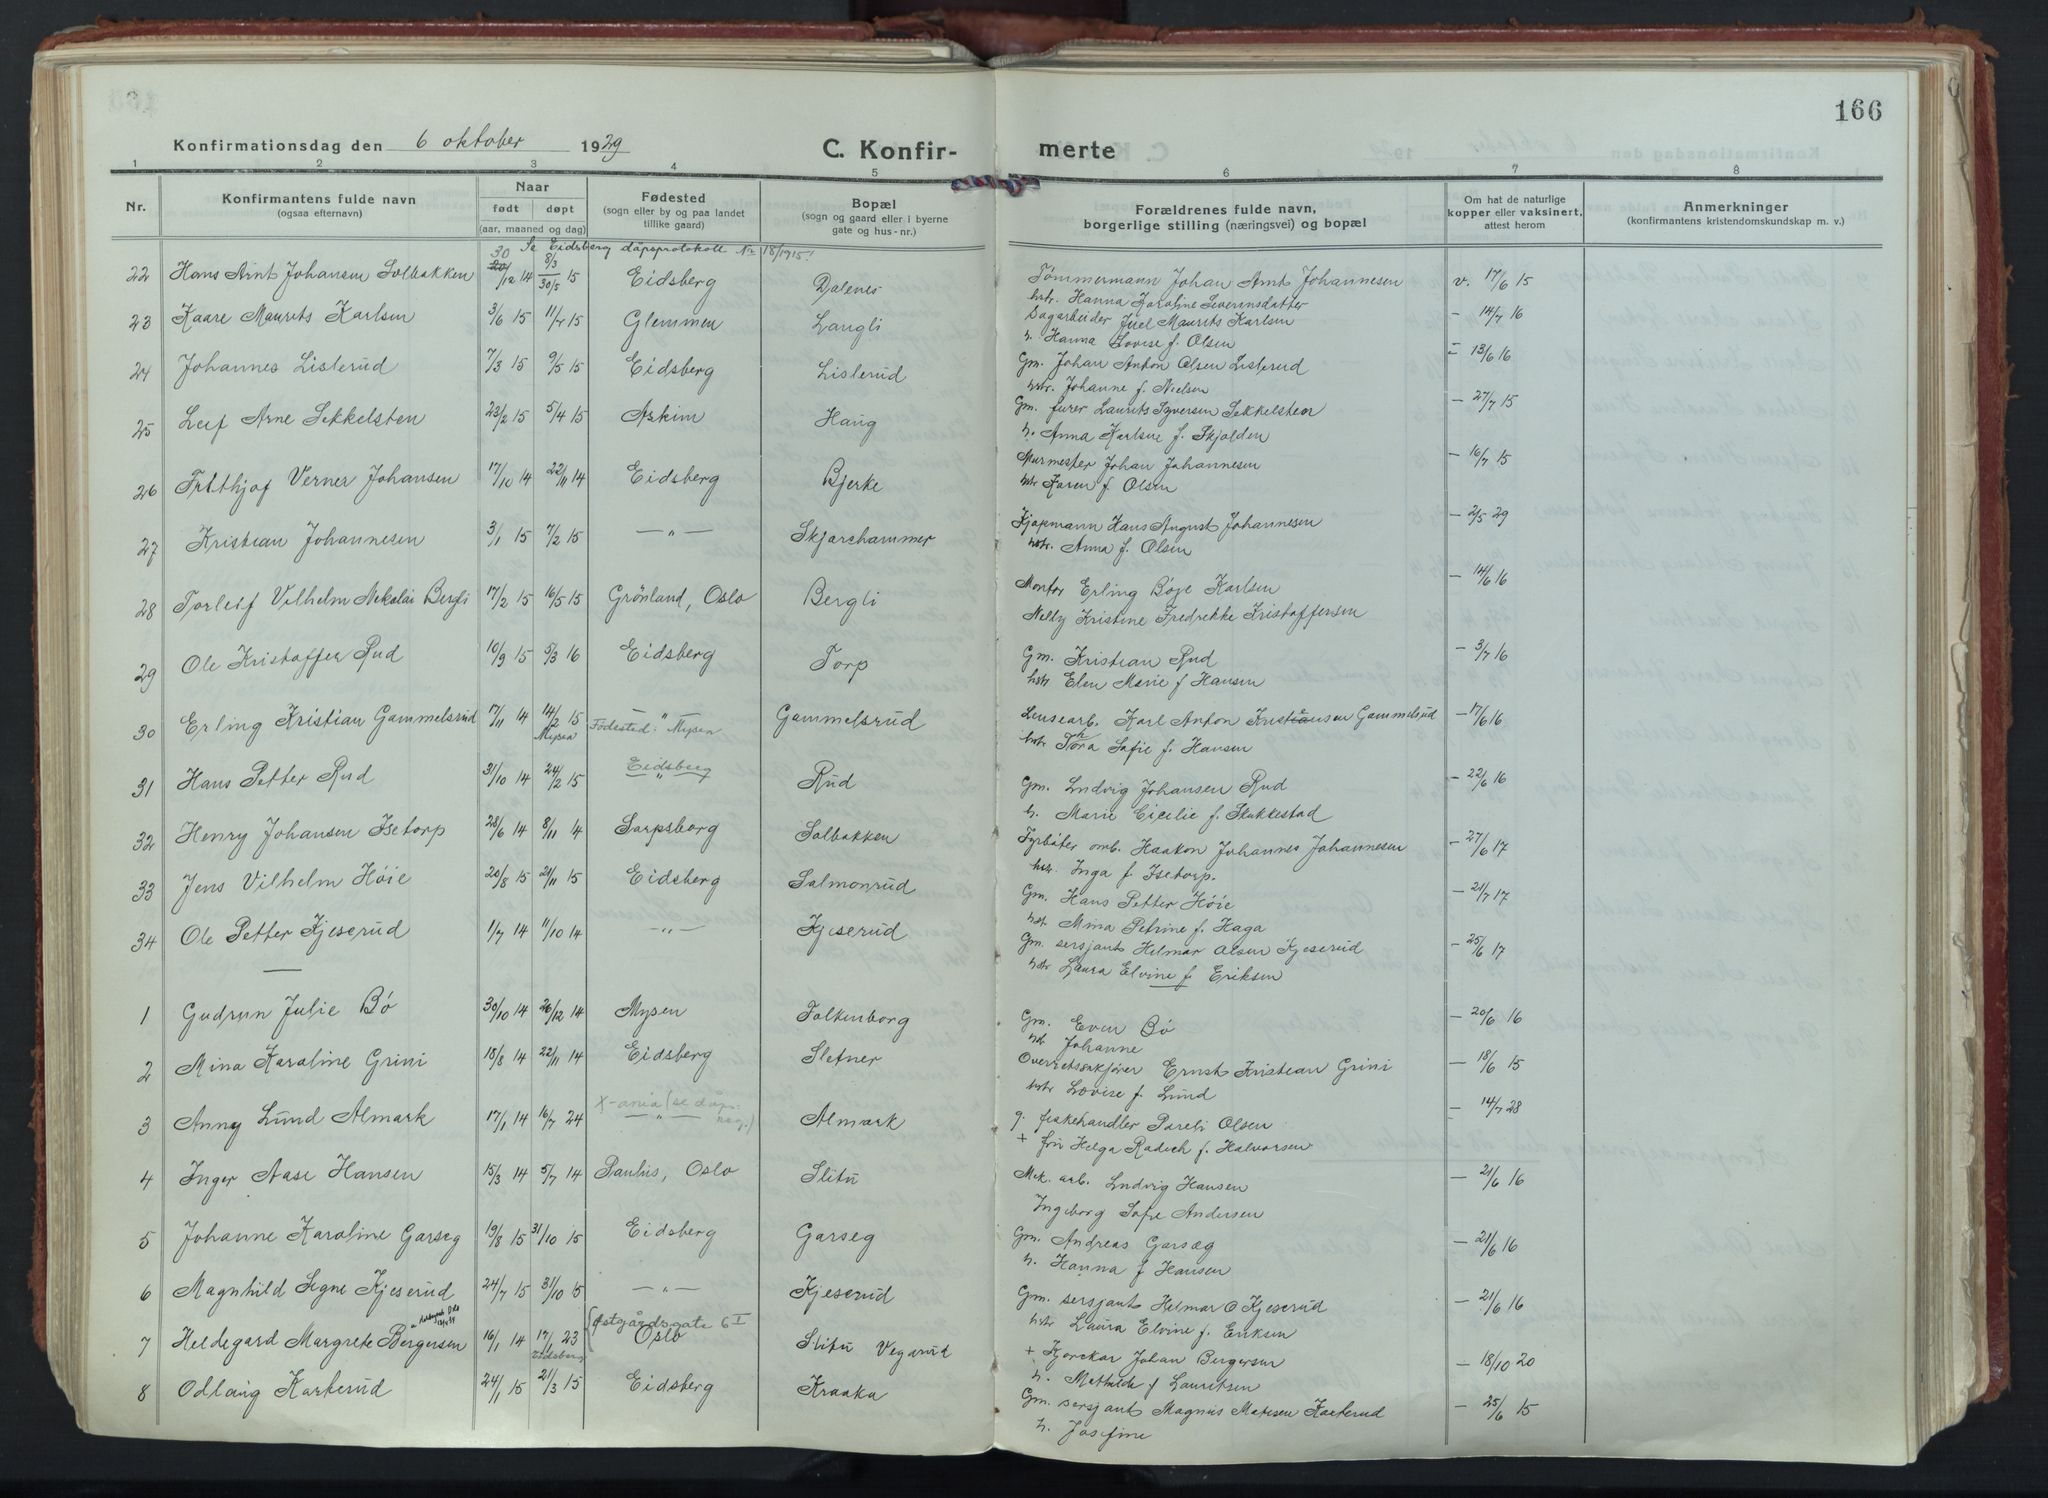 166
Konfirmationsdag den 6 oktober 1929
C. Konfir-
merte
1 2 3 4 5 6 7 8
Nr.
Konfirmantens fulde navn
(ogsaa efternavn)
Naar
født døpt
(aar, maaned og dag)
Fødested
(sogn eller by og paa landet
tillike gaard)
Bopæl
(sogn og gaard eller i byerne
gate og hus-nr.)
Forældrenes fulde navn,
borgerlige stilling (næringsvei) og bopæl
Om hat de naturlige
kopper eller vaksinert,
attest herom
Anmerkninger
(konfirmantens kristendomskundskap m. v.)
Se Eidsberg dåpsprotokoll Nr 18/1915!
22 Hans Arnt Johansen Solbakken 30/12 14 8/3 30/5 15 Eidsberg Dalenes Tømmermann Johan Arnt Johannesen v. 17/6 15
hstr. Hanna Karoline Severinsdatter
23 Kaare Maurits Karlsen 3/6 15 11/7 15 Glemmen Langli Sagarbeider Juel Maurits Karlsen - 14/7 16
h. Hanna Lovise f. Olsen
24 Johannes Listerud 7/3 15 9/5 15 Eidsberg Listerud Gm. Johan Anton Olsen Listerud - 13/6 16
hstr. Johanne f. Nielsen
25 Leif Arne Sekkelsten 23/2 15 5/4 15 Askim Haug Gm. furer Laurits Syversen Sekkelsten - 27/7 15
h. Anna Karlsne f. Skjolden
26 Fritthjof Verner Johansen 17/10 14 22/11 14 Eidsberg Bjerke Murmester Johan Johannesen - 16/7 15
hstr Karen f. Olsen
27 Kristian Johannesen 3/1 15 7/2 15 — " — Skjærshammer Kjøpmann Hans August Johannesen - 2/5 29
hstr. Anna f. Olsen
28 Torleif Vilhelm Nikolai Bergli 17/2 15 16/5 15 Grönland, Oslo Bergli Montør Erling Bøje Karlsen - 14/6 16
Nelly Kristine Fredrekke Kristoffersen
29 Ole Kristoffer Rud 10/9 15 5/3 16 Eidsberg Torp Gm. Kristian Rud - 3/7 16
hstr Elen Marie f Hansen
30 Erling Kristian Gammelsrud 17/11 14 14/2 15 Mysen — " — Fødested: Mysen Gammelsrud Lensearb. Karl Anton Kristiansen Gammelsrud - 17/6 16
hstr Thora Sofie f. Hansen
31 Hans Petter Rud 31/10 14 24/2 15 Eidsberg — " — Rud Gm. Ludvig Johansen Rud - 22/6 16
h. Marie Cicilie f. Slukkestad
32 Henry Johansen Isetorp 28/6 14 8/11 14 Sarpsborg Solbakken Fyrbøter omb. Haakon Johannes Johannesen - 27/6 17
hst. Inga f. Isetorp.
33 Jens Vilhelm Höie 20/8 15 21/11 15 Eidsberg Salmonrud Gm. Hans Petter Höie - 21/7 17
hst. Mina Petrine f. Haga
34 Ole Petter Kjeserud 1/7 14 11/10 14 — " — Kjeserud Gm. sersjant Helmar Olsen Kjeserud - 25/6 17
hstr Laura Elvine f Eriksen
1 Gudrun Julie Bö 30/10 14 26/12 14 Mysen Folkenborg Gm. Even Bö - 20/6 16
hst. Johanne
2 Mina Karoline Grini 18/8 14 22/11 14 Eidsberg Sletner Overretssakfører Ernst Kristian Grini - 18/6 15
hstr Lovise f. Lund
3 Anny Lund Almark 17/1 14 16/7 24 X-ania (se dåps- reg.) — " — Almark g. fiskehandler Pareli Olsen - 14/7 28
+ frn Helga Radich f. Halvorsen
4 Inger Aase Hansen 15/3 14 5/7 14 Paulus, Oslo Slitu Mek. arb. Ludvig Hansen - 21/6 16
Ingeborg Sofie Andersen
5 Johanne Karoline Garseg 19/8 15 31/10 15 Eidsberg Garseg Gm. Andreas Garsæg - 21/6 16
h. Hanna f Hansen
6 Magnhild Signe Kjeserud 24/7 15 31/10 15 — " — Kjeserud Gm. sersjant Helmar O Kjeserud - 21/6 16
hstr Laura Elvine f. Eriksen
7 Heldegard Margrete Bergersen 16/1 14 17/1 23 Eidsberg Østgårdsgate 6 I Oslo Slitu Vegarud + Kjørekar Johan Bergersen - 18/10 20
h. Mathilde f Lauritsen
8 Odlaug Karterud 24/1 15 21/3 15 Eidsberg Kraaka Gm. sersjant Magnus Matisen Karterud - 25/6 15
h. Josefine